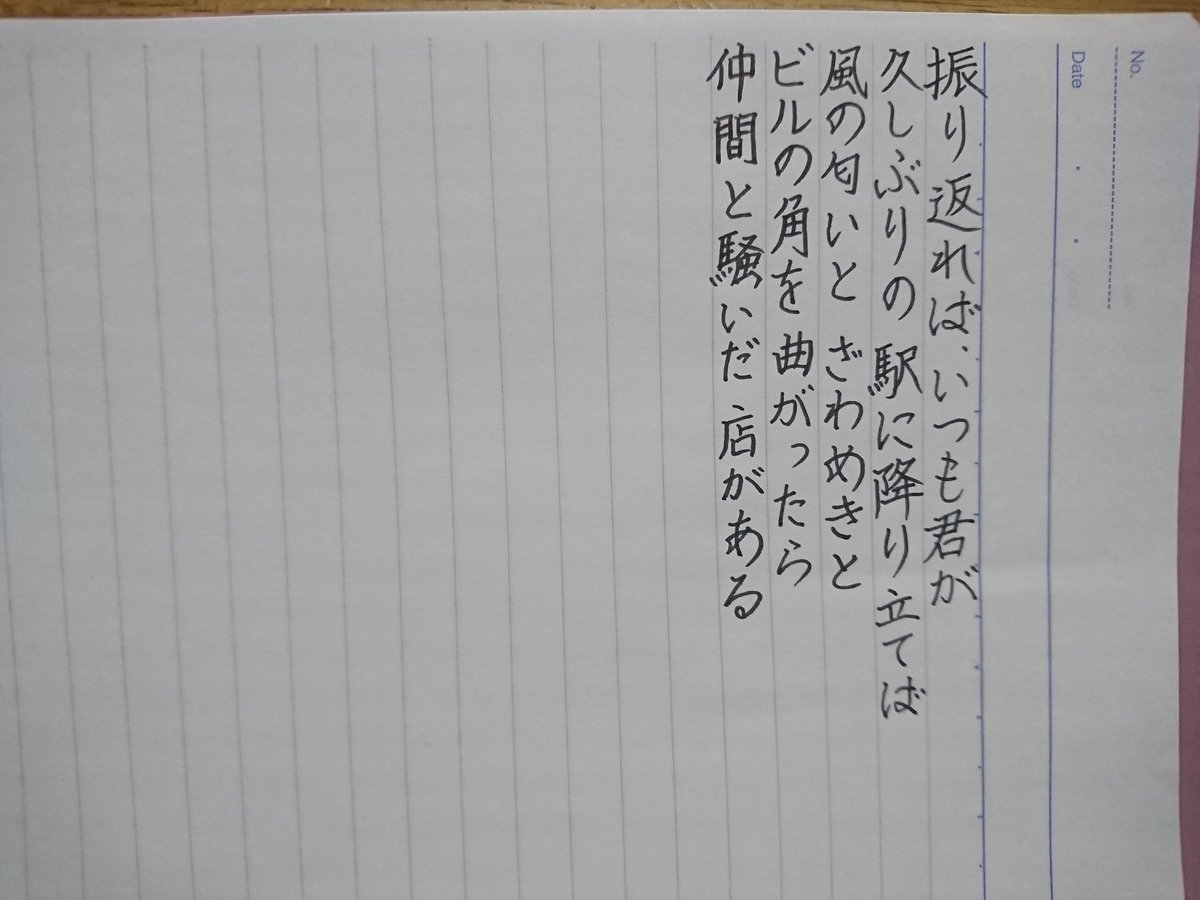 No.
Date
振り返れば、いつも君が
久しぶりの 駅に降り立てば
風の匂いと ざわめきと
ビルの角を曲がったら
仲間と騒いだ店がある